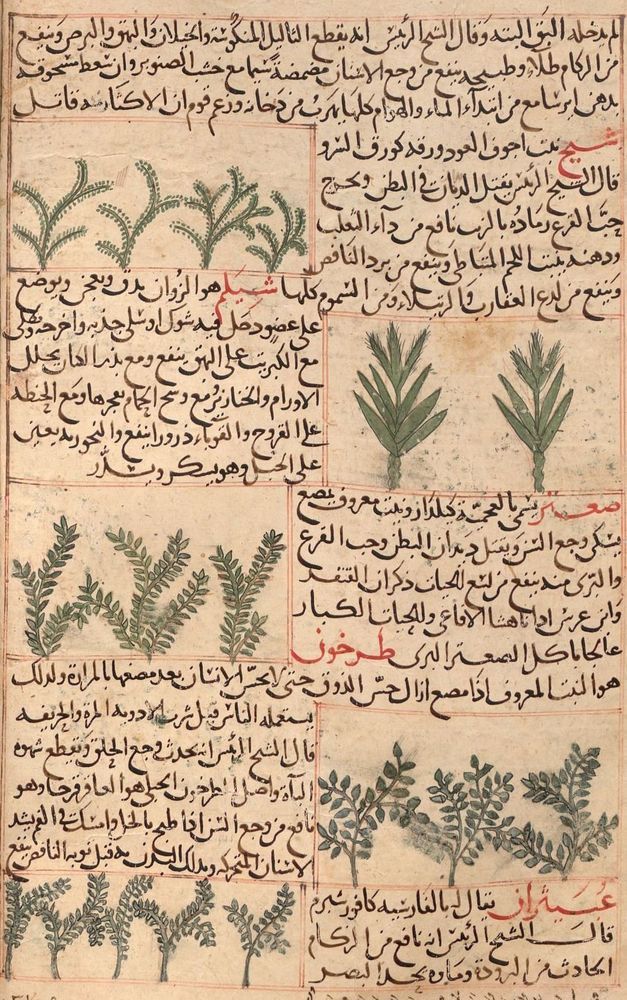 لم يدخله البق البتة وقال الشيخ الرئيس انه يقطع الثآليل المنكوسة والخيلان والبهق والبرص وينفع
من الزكام طلاء وطبيخه ينفع من وجع الاسنان مضمضة سيما مع خشب الصنوبر وان سعط مسحوقه
بدهن ايرسا مع من ابتداء الماء والهوام كلها يهرب من دخانه وزعم قوم ان الاكثار منه قاتل
شيح نبت اجوف العود ورقه كورق السرو
قال الشيخ الرئيس يقتل الديدان في البطن ويخرج
حب القرع رماده بالزيت نافع من داء الثعلب
ودهنه ينبت اللحم المتباطي وينفع من برد النافض
وينفع من لدغ العقارب والرتيلاء ومن السموم
كلها شيلم هو الزوان يدق ويعجن ويوضع
على عضو دخل فيه شوك او سلى جذبه واخرجه وطلى
مع الكبريت على البهق ينفع ومع بذر الكتان يحلل
الاورام والخنازير مع وسخ الحمام بمعجرها ومع الحنطة
على القروح والقوباء ذرورا ينفع والتبخر به يعين
على الحبل وهو يسكر ويسدر
صعتر يسمى بالعجمية نبت معروف يمضع
يسكن وجع السن ويقتل ديدان البطن وحب القرع
والبرى منه ينفع من لسع الحيات ذكر ان القنفذ
وابن عرس اذا ناهشا الافاعي والحيات الكبار
عالجا باكل الصعتر البرى طرخون
هو النبت المعروف اذا مضع ازال حس الذوق حتى لا يحس الانسان بعد مضغها بالمرارة ولذلك
يستعمله الناس قبل شرب الادوية المرة والحريفة
قال الشيخ الرئيس انه يحدث وجع الحلق ويقطع شهوة
الباه واصل الطرخون الجبلي هو العاقرقرحا وهو
نافع من وجع السن اذا طبخ بالخل وامسك في الفم يشد
الاسنان المتحركة ويدلك البدن به قبل نوبة النافض ينفع
عبيثران يقال له بالفارسية كافور
قال الشيخ الرئيس انه نافع من الزكام
الحادث من البرودة وماؤه يحد البصر